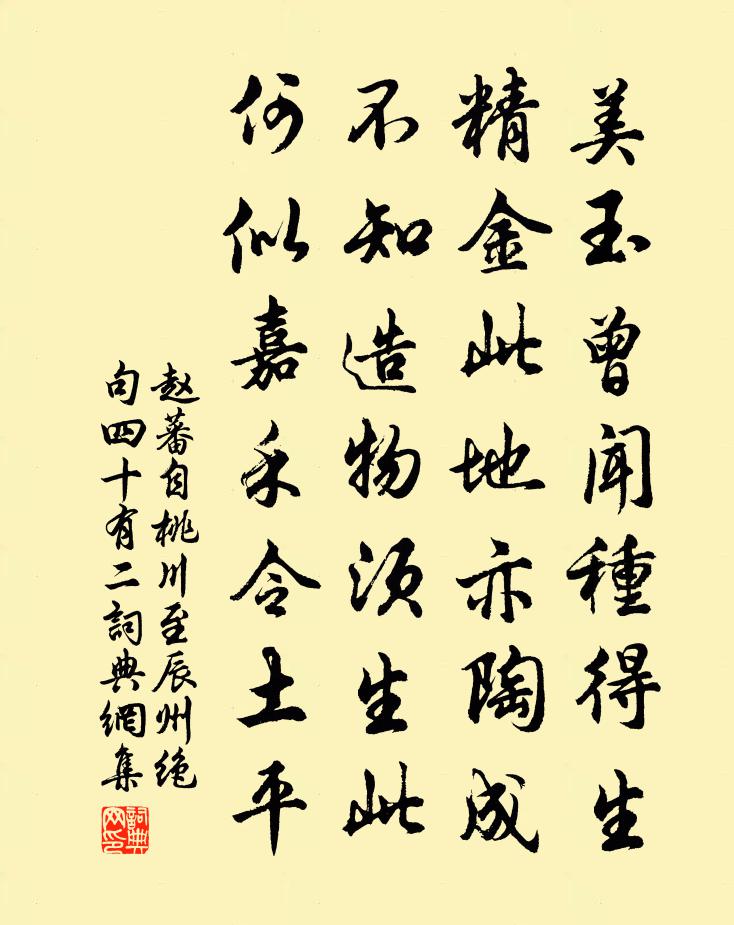 美玉曾闻種得生
精金此地亦陶成
不知造物须生此
何似嘉禾令土平
赵蕃自桃川至辰州绝
句四十有二詞典網集
詞典
网印